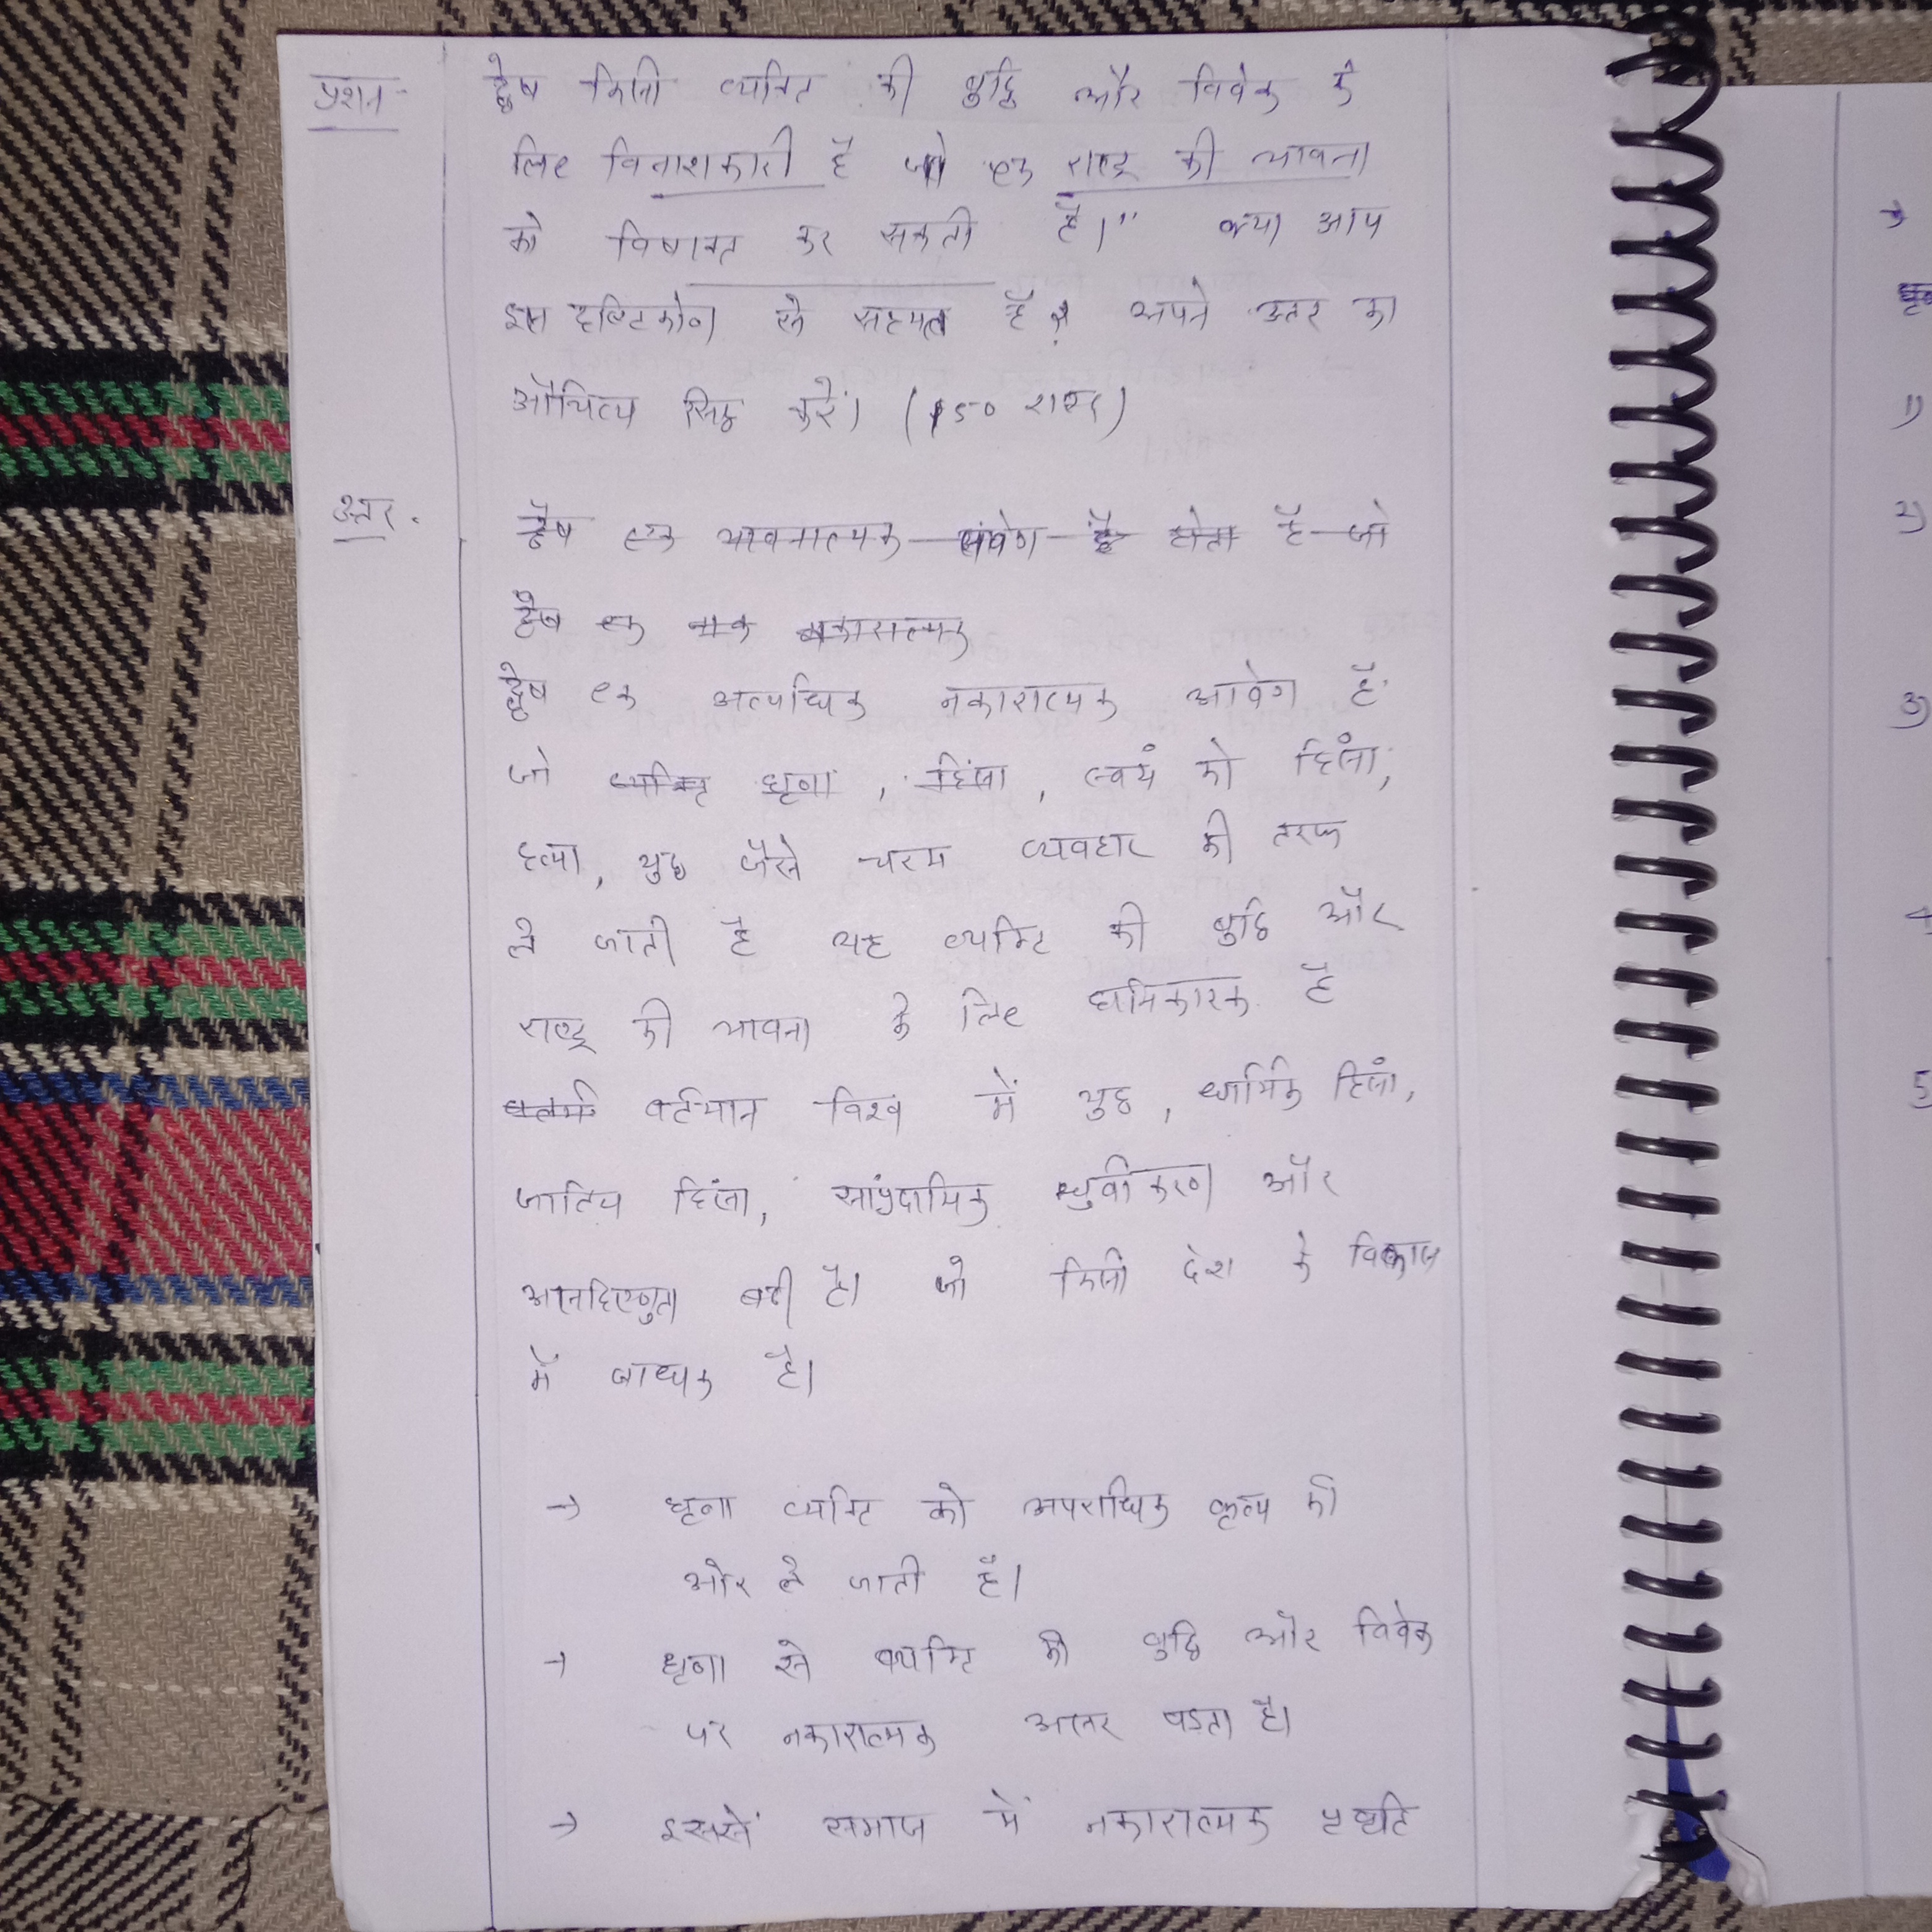 प्रशन- द्वेष किसी व्यक्ति की बुद्धि और विवेक के
लिए विनाशकारी है जो एक राष्ट्र की भावना
को विषाक्त कर सकती है।" क्या आप
इस दृष्टिकोण से सहमत है? अपने उत्तर का
औचित्य सिद्ध करें। (150 शब्द)
उत्तर. द्वैष एक भावनात्मक संवेग है होता है जो
द्वैष एक नाक नकारात्मक
द्वेष एक अत्यधिक नकारात्मक आवेग है
जो व्यक्ति घृणा, हिंसा, स्वयं को हिंसा,
हत्या, युद्ध जैसे चरम व्यवहार की तरफ
ले जाती है यह व्यक्ति की बुद्धि और
राष्ट्र की भावना के लिए हानिकारक है
वर्तमान विश्व में युद्ध, धार्मिक हिंसा,
जातिय हिंसा, सांप्रदायिक ध्रुवीकरण और
असहिष्णुता बढी है। जो किसी देश के विकास
में बाधक है।
→ घृणा व्यक्ति को अपराधिक कृत्य की
ओर ले जाती है।
→ घृणा से व्यक्ति की बुद्धि और विवेक
पर नकारात्मक असर पडता है।
→ इससें समाज में नकारात्मक
1)
2)
3)
4
5